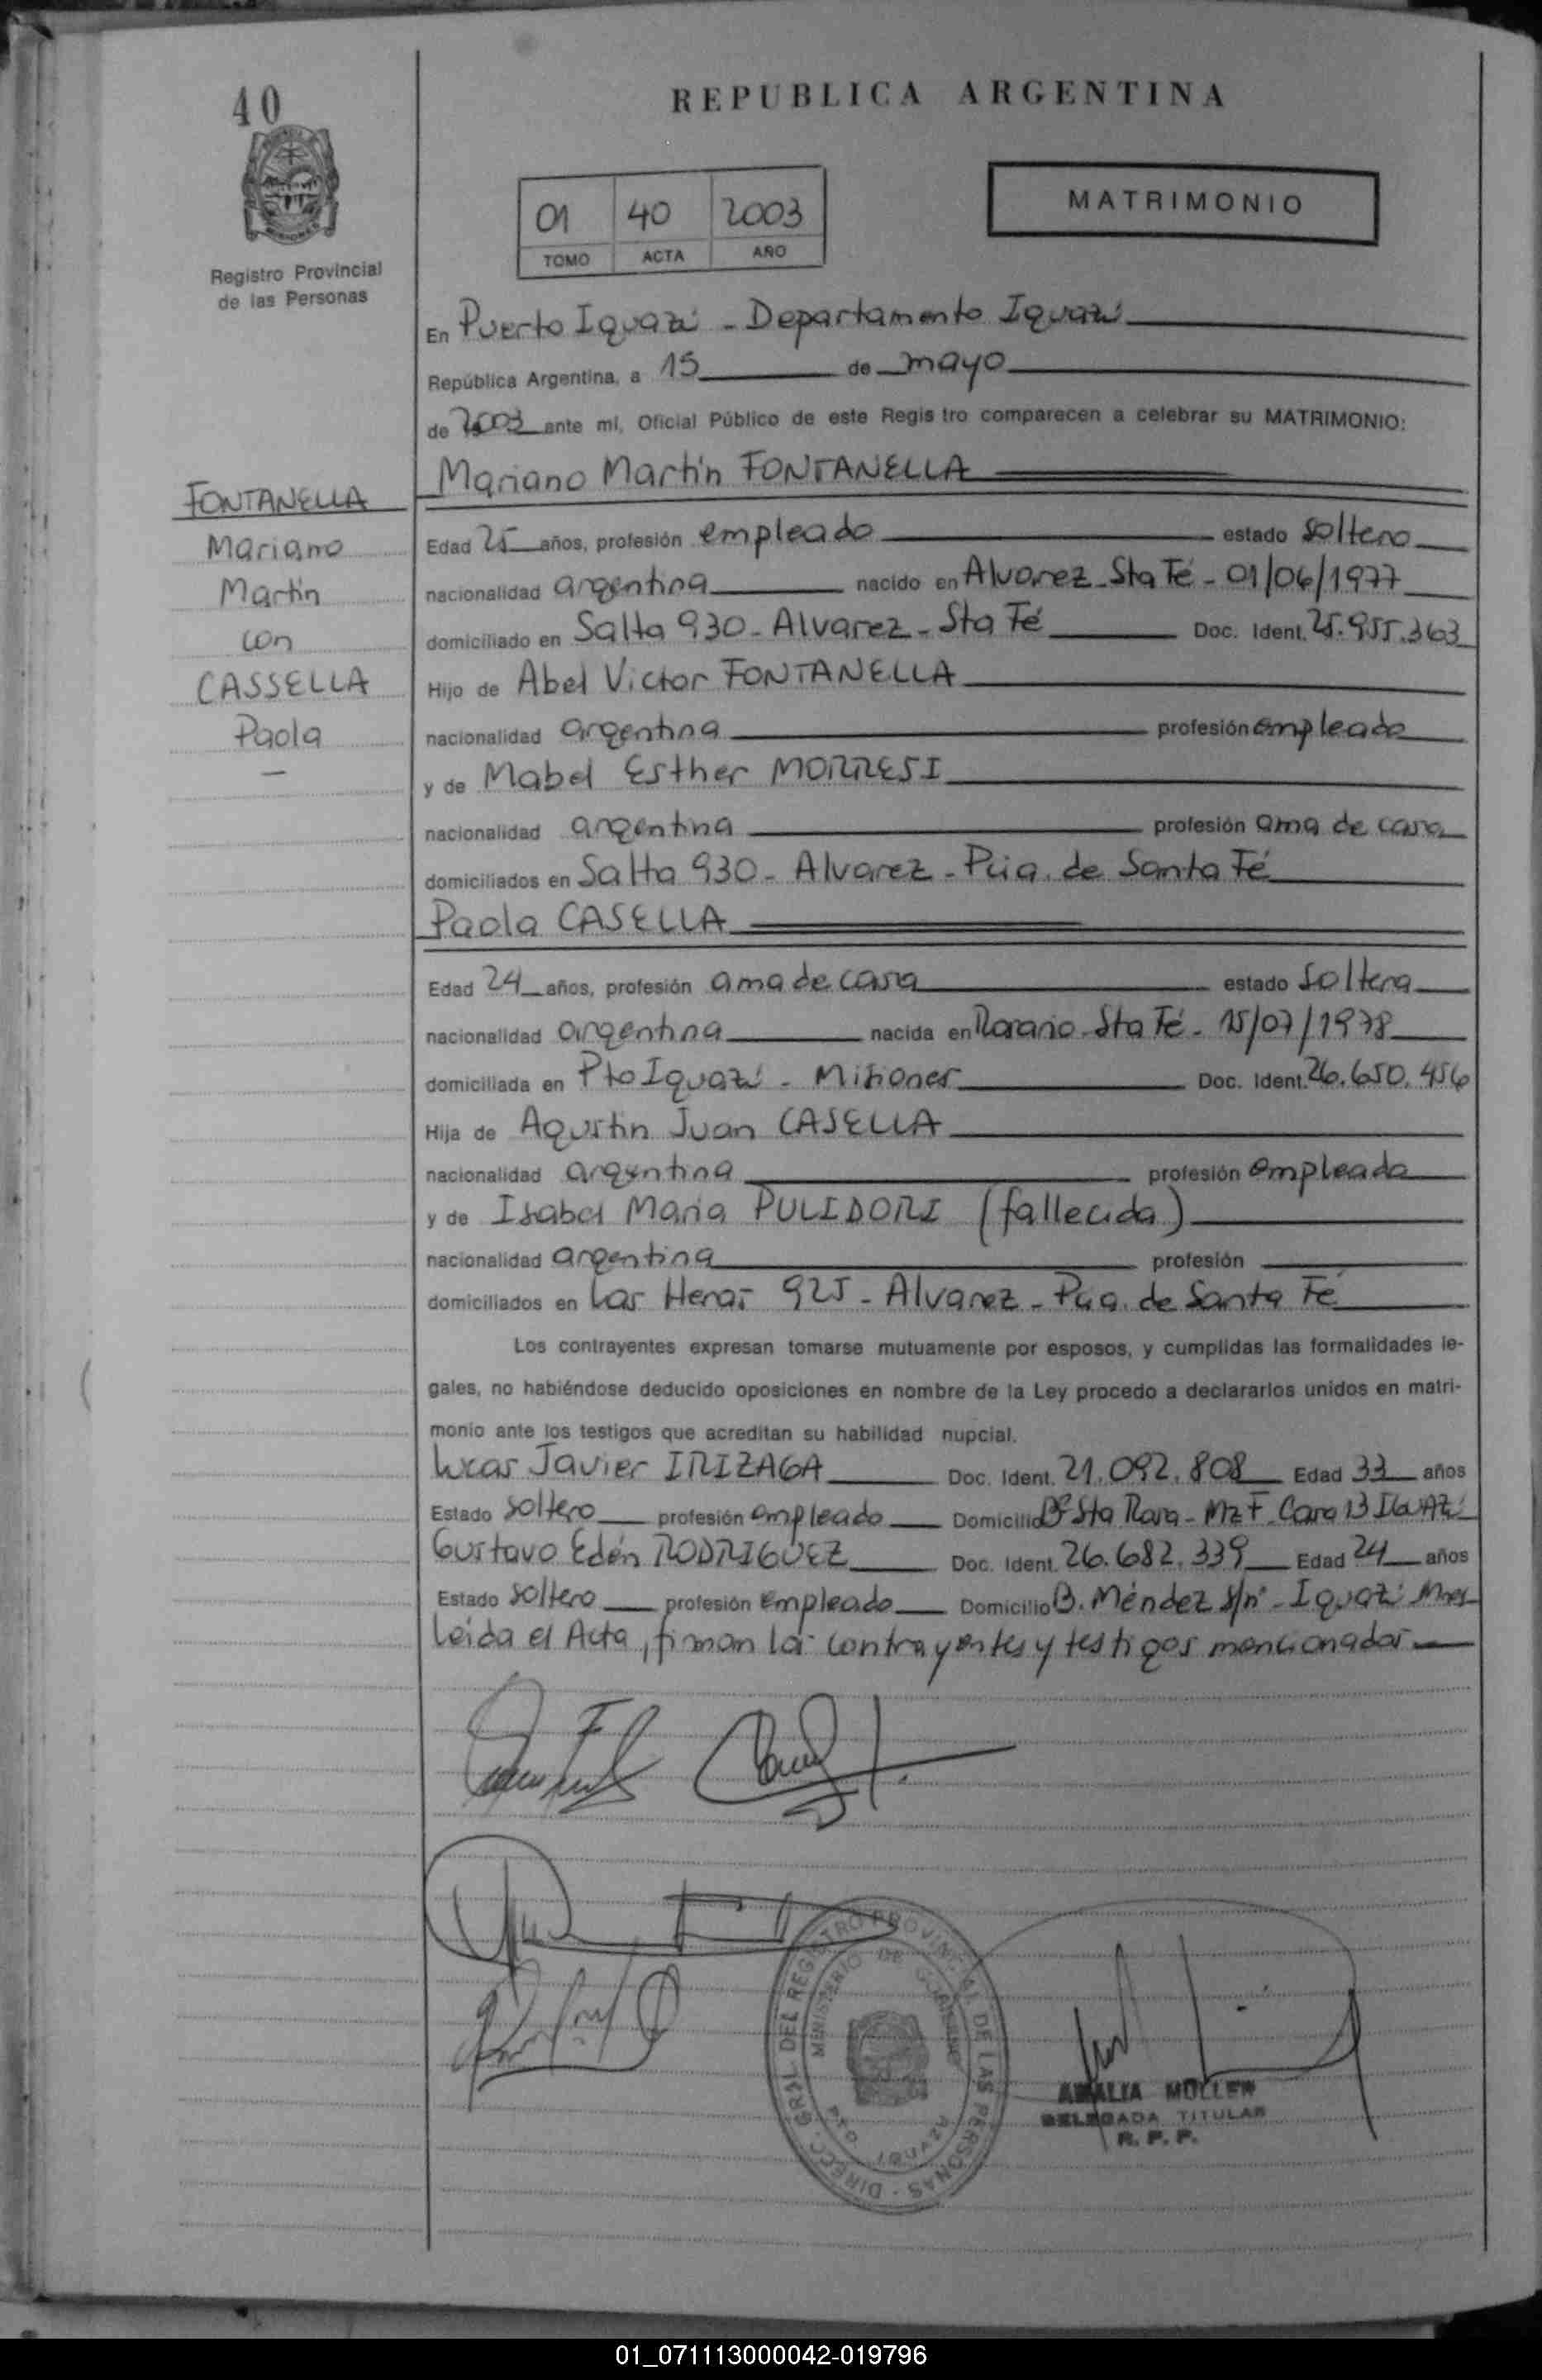 40
REPUBLICA ARGENTINA
01 40 2003
TOMO ACTA AÑO
MATRIMONIO
Registro Provincial
de las Personas
En Puerto Iguazú - Departamento Iguazú
República Argentina, a 15 de mayo
de 2003 ante mi, Oficial Público de este Regis tro comparecen a celebrar su MATRIMONIO:
Mariano Martín FONTANELLA
FONTANELLA
Mariano
Martín
con
CASSELLA
Paola
Edad 25 años, profesión empleado estado soltero
nacionalidad argentina nacido en Alvarez - Sta Fé - 01/06/1977
domiciliado en Salta 930 - Alvarez - Sta Fé Doc. Ident. 25.955.363
Hijo de Abel Victor FONTANELLA
nacionalidad argentina profesión empleado
y de Mabel Esther MORRESI
nacionalidad argentina profesión ama de casa
domiciliados en Salta 930 - Alvarez - Pcia. de Santa Fé
Paola CASELLA
Edad 24 años, profesión ama de casa estado soltera
nacionalidad argentina nacida en Rosario - Sta Fé - 15/07/1978
domiciliada en Pto Iguazú - Misiones Doc. Ident. 26.650.456
Hija de Agustin Juan CASELLA
nacionalidad argentina profesión empleado
y de Isabel Maria PULIDORI (fallecida)
nacionalidad argentina profesión
domiciliados en Las Heras 925 - Alvarez - Pcia. de Santa Fé
Los contrayentes expresan tomarse mutuamente por esposos, y cumplidas las formalidades le-
gales, no habiéndose deducido oposiciones en nombre de la Ley procedo a declararlos unidos en matri-
monio ante los testigos que acreditan su habilidad nupcial.
Lucas Javier IRIZAGA Doc. Ident. 21.092.808 Edad 33 años
Estado soltero profesión empleado Domicilio Bº Sta Rosa - Mz F - Casa 13 IGUAZÚ
Gustavo Edén RODRIGUEZ Doc. Ident. 26.682.339 Edad 24 años
Estado soltero profesión empleado Domicilio B. Méndez s/nº - Iguazú Mnes
Leída el Acta, firman los contrayentes y testigos mencionados
DIRECC. GRAL. DEL REGISTRO PROVINCIAL DE LAS PERSONAS
MINISTERIO DE GOBIERNO
PTO. IGUAZU
AMALIA MULLER
DELEGADA TITULAR
R. P. P.
01_071113000042-019796